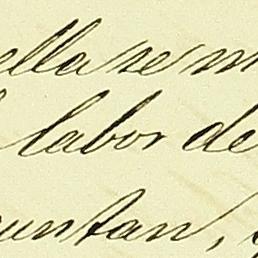 ella se m
labor de
untan,